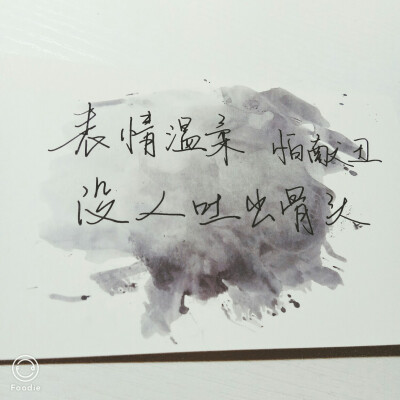 表情温柔 怕献丑
没人吐出骨头
Foodie